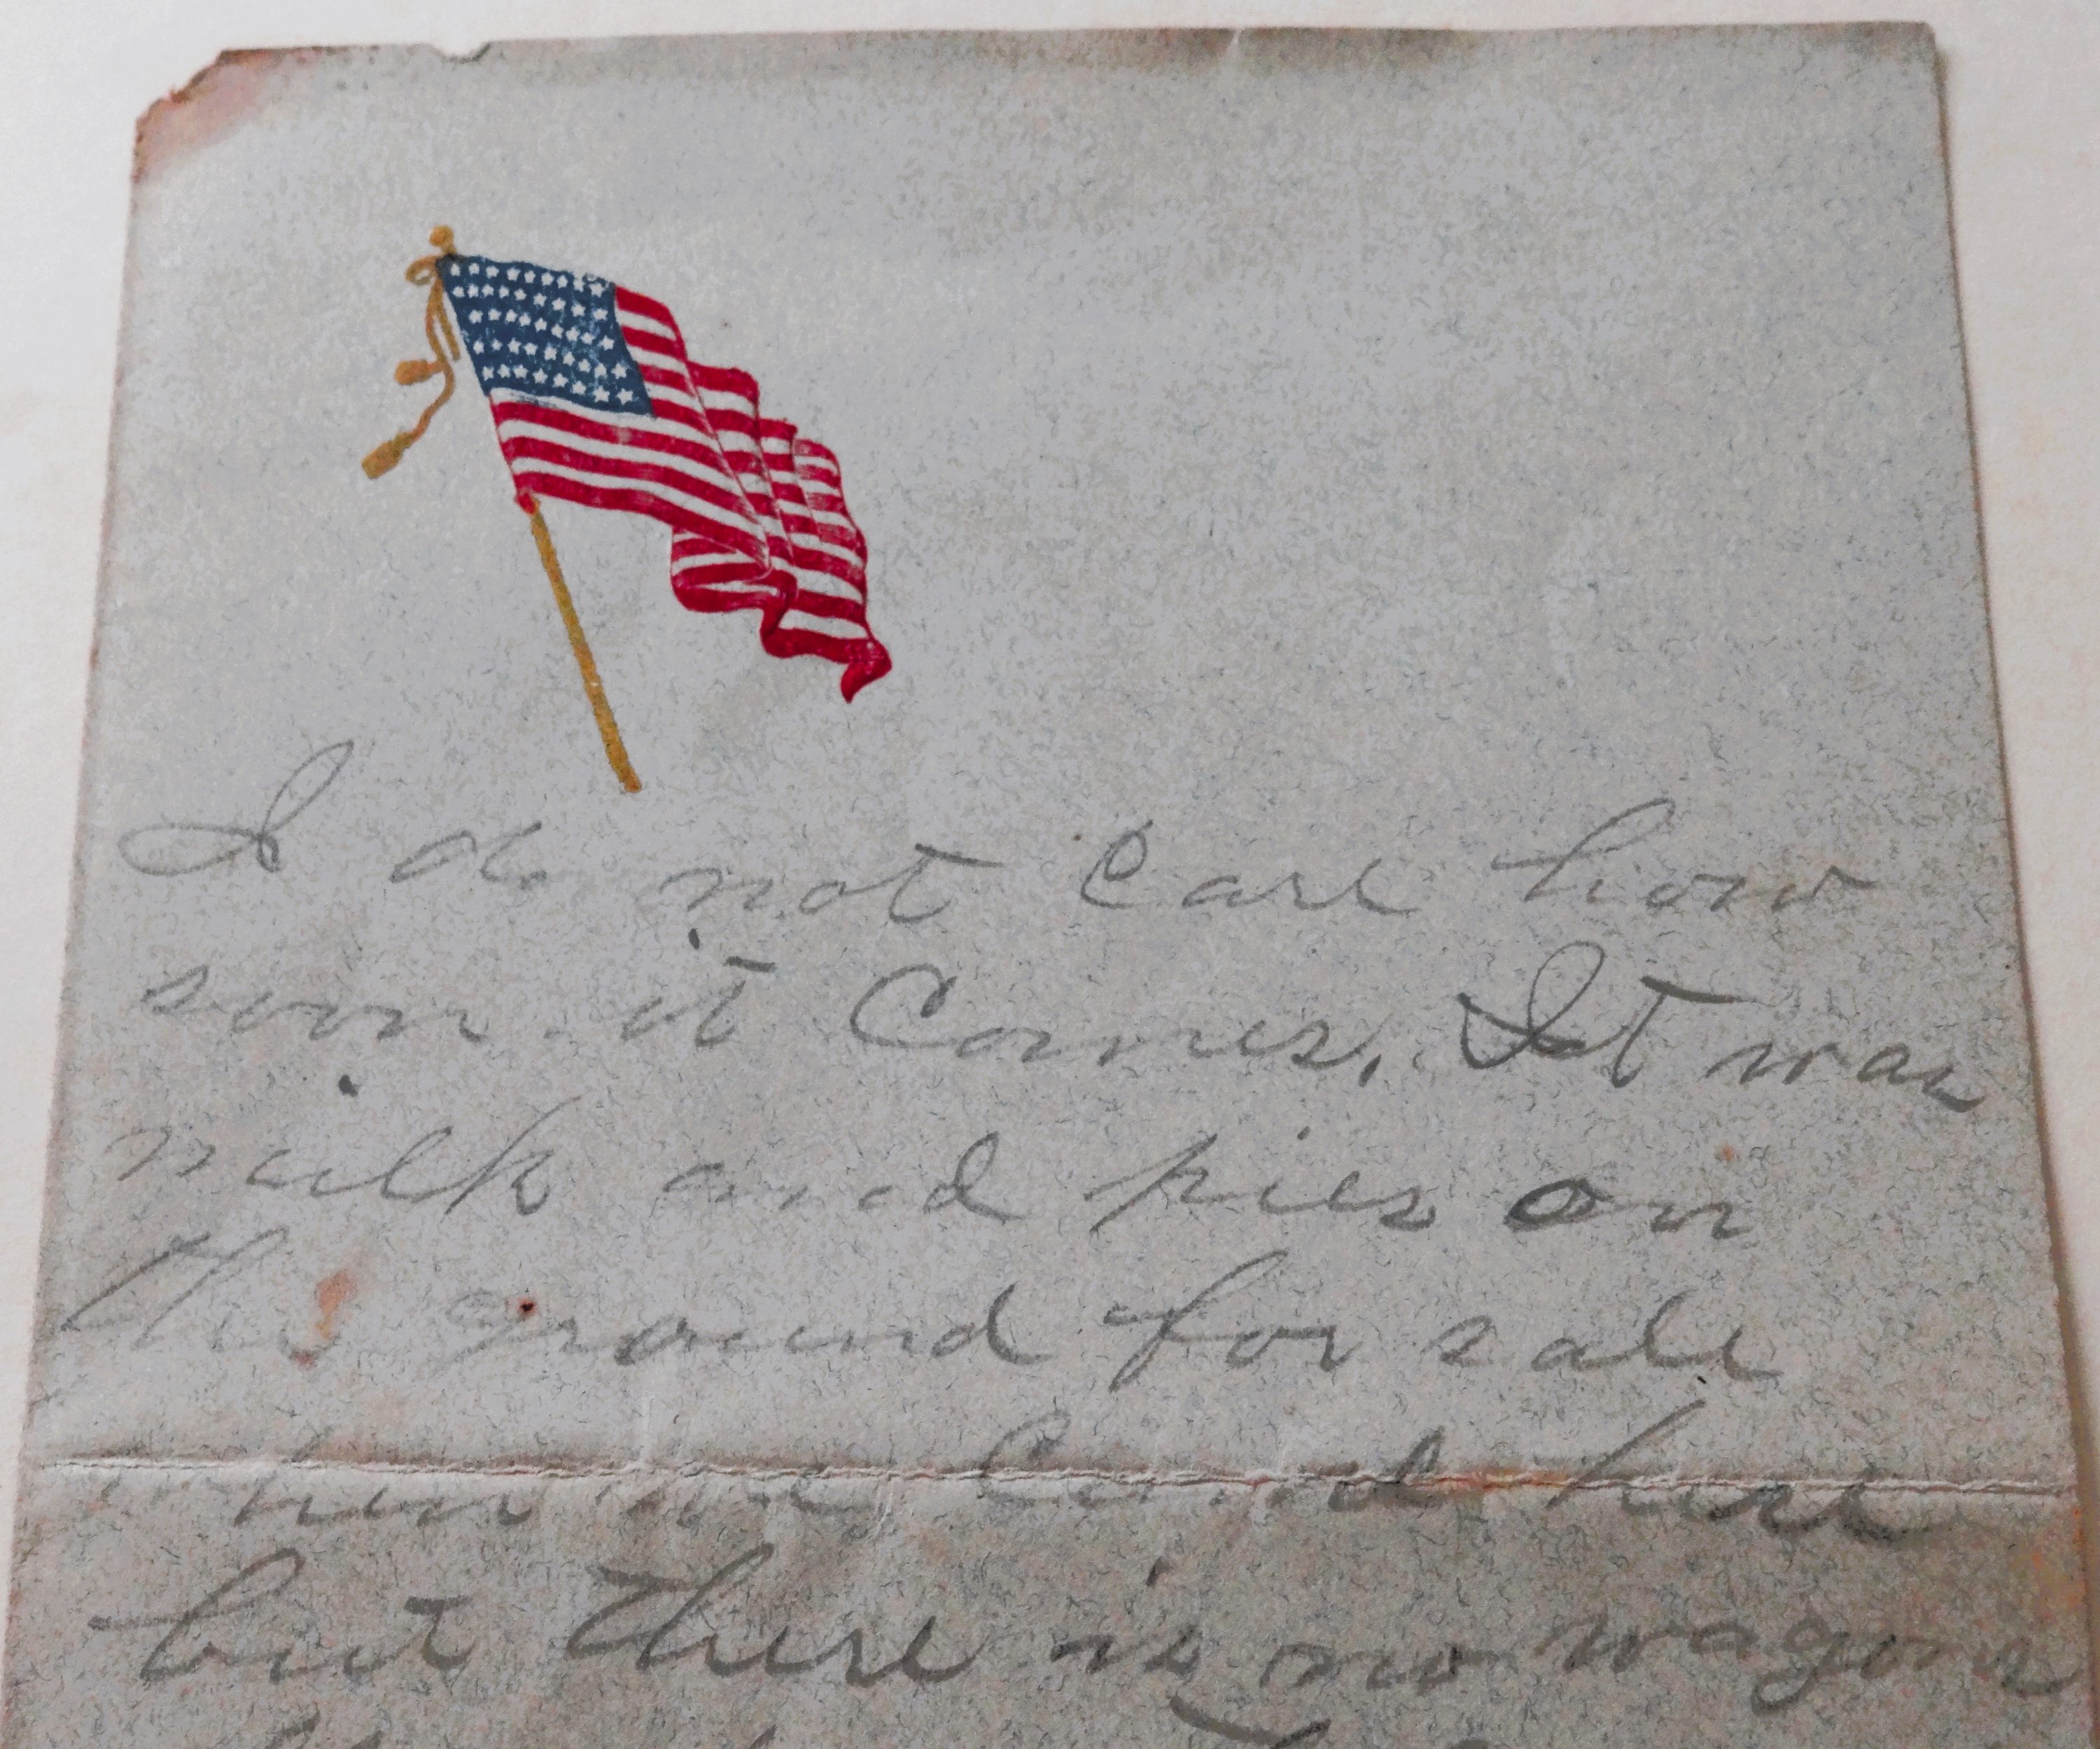 I do not Care how
soon it Comes, It was
milk and pies on
the ground for sale
when we Come here
but there is no wagons